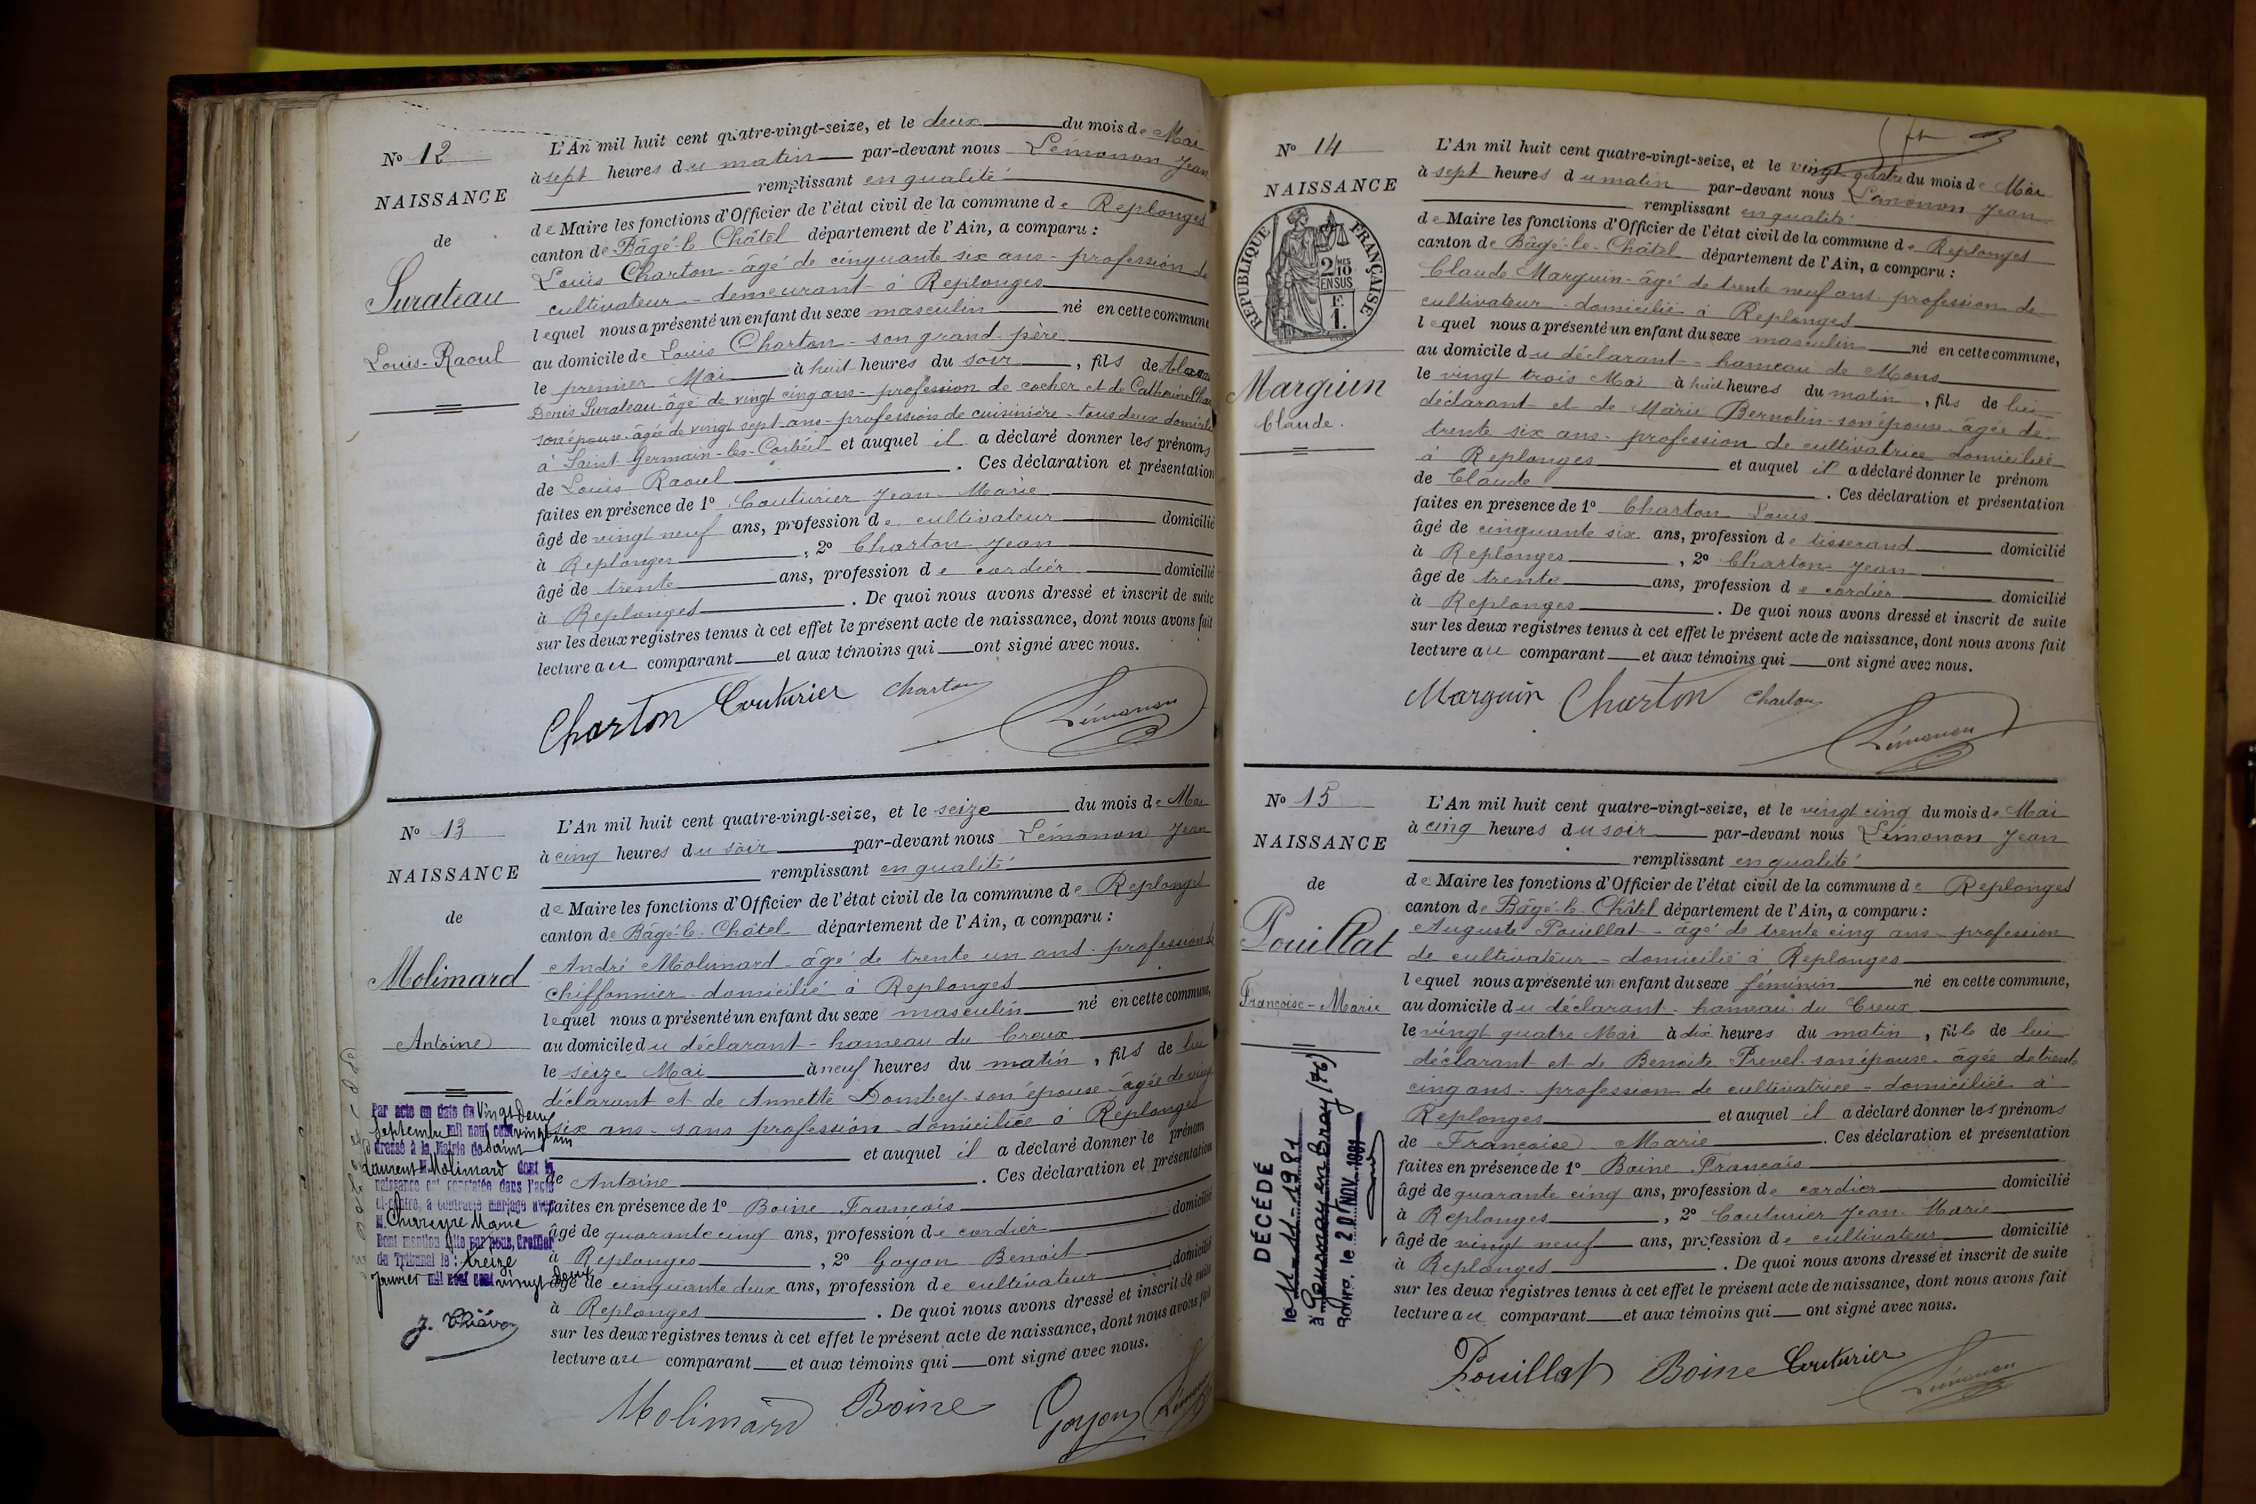 N° 12
NAISSANCE
de
Surateau
Louis-Raoul
L'An mil huit cent quatre-vingt-seize, et le deux du mois de Mai
à sept heures du matin par-devant nous Lémonon Jean
remplissant en qualité
de Maire les fonctions d'Officier de l'état civil de la commune de Replonges
canton de Bâgé-le-Châtel département de l'Ain, a comparu :
Louis Charton - âgé de cinquante six ans - profession de
cultivateur - demeurant à Replonges
lequel nous a présenté un enfant du sexe masculin né en cette commune
au domicile de Louis Charton - son grand père
le premier Mai à huit heures du soir, fils de
Denis Surateau âgé de vingt cinq ans - profession de cocher et de Catherine
son épouse - âgée de vingt sept ans - profession de cuisinière - tous deux domiciliés
à Saint Germain-les-Corbeil et auquel il a déclaré donner les prénoms
de Louis Raoul. Ces déclaration et présentation
faites en présence de 1° Couturier Jean-Marie
âgé de vingt neuf ans, profession de cultivateur domicilié
à Replonges, 2° Charton Jean
âgé de trente ans, profession de cordier domicilié
à Replonges. De quoi nous avons dressé et inscrit de suite
sur les deux registres tenus à cet effet le présent acte de naissance, dont nous avons fait
lecture au comparant et aux témoins qui ont signé avec nous.
Charton Couturier Charton Lémonon
N° 13
NAISSANCE
de
Molimard
Antoine
Par acte en date du Vingt Deux
Septembre mil neuf cent vingt un
dressé à la Mairie de Saint
Laurent M. Molimard dont la
naissance est constatée dans l'acte
ci-contre, a contracté mariage avec
M. Chareyre Marie
Dont mention faite par nous, Greffier
du Tribunal le : treize
Janvier mil neuf cent vingt deux
L'An mil huit cent quatre-vingt-seize, et le seize du mois de Mai
à cinq heures du soir par-devant nous Lémonon Jean
remplissant en qualité
de Maire les fonctions d'Officier de l'état civil de la commune de Replonges
canton de Bâgé-le-Châtel département de l'Ain, a comparu :
André Molimard - âgé de trente un ans - profession de
chiffonnier - domicilié à Replonges
lequel nous a présenté un enfant du sexe masculin né en cette commune,
au domicile du déclarant - hameau du Creux
le seize Mai à neuf heures du matin, fils de lui
déclarant et de Annette Dombey - son épouse - âgée de vingt
six ans - sans profession - domiciliée à Replonges
et auquel il a déclaré donner le prénom
de Antoine. Ces déclaration et présentation
faites en présence de 1° Boine François
âgé de quarante cinq ans, profession de cordier domicilié
à Replonges, 2° Goyon Benoit
âgé de cinquante deux ans, profession de cultivateur domicilié
à Replonges. De quoi nous avons dressé et inscrit de suite
sur les deux registres tenus à cet effet le présent acte de naissance, dont nous avons fait
lecture au comparant et aux témoins qui ont signé avec nous.
Molimard Boine Goyon Lémonon
N° 14
NAISSANCE
RÉPUBLIQUE FRANÇAISE
2/10 MES EN SUS
F. 1.
Marguin
Claude.
L'An mil huit cent quatre-vingt-seize, et le vingt quatre du mois de Mai
à sept heures du matin par-devant nous Lémonon Jean
remplissant en qualité
de Maire les fonctions d'Officier de l'état civil de la commune de Replonges
canton de Bâgé-le-Châtel département de l'Ain, a comparu :
Claude Marguin - âgé de trente neuf ans - profession de
cultivateur - domicilié à Replonges
lequel nous a présenté un enfant du sexe masculin né en cette commune,
au domicile du déclarant - hameau de Mons
le vingt trois Mai à huit heures du matin, fils de lui
déclarant et de Marie Bernolin - son épouse - âgée de
trente six ans - profession de cultivatrice domiciliée
à Replonges et auquel il a déclaré donner le prénom
de Claude. Ces déclaration et présentation
faites en présence de 1° Charton Louis
âgé de cinquante six ans, profession de tisserand domicilié
à Replonges, 2° Charton Jean
âgé de trente ans, profession de cordier domicilié
à Replonges. De quoi nous avons dressé et inscrit de suite
sur les deux registres tenus à cet effet le présent acte de naissance, dont nous avons fait
lecture au comparant et aux témoins qui ont signé avec nous.
Marguin Charton Charton Lémonon
N° 15
NAISSANCE
de
Pouillat
Françoise-Marie
DÉCÉDÉ
le 11-11-1981
à Gournay en Bray (76)
le 20 NOV. 1981
L'An mil huit cent quatre-vingt-seize, et le vingt cinq du mois de Mai
à cinq heures du soir par-devant nous Lémonon Jean
remplissant en qualité
de Maire les fonctions d'Officier de l'état civil de la commune de Replonges
canton de Bâgé-le-Châtel département de l'Ain, a comparu :
Auguste Pouillat - âgé de trente cinq ans - profession
de cultivateur - domicilié à Replonges
lequel nous a présenté un enfant du sexe féminin né en cette commune,
au domicile du déclarant - hameau du Creux
le vingt quatre Mai à dix heures du matin, fille de lui
déclarant et de Benoite Prevel - son épouse - âgée de trente
cinq ans - profession de cultivatrice - domiciliée à
Replonges et auquel il a déclaré donner les prénoms
de Françoise Marie. Ces déclaration et présentation
faites en présence de 1° Boine Francois
âgé de quarante cinq ans, profession de cordier domicilié
à Replonges, 2° Couturier Jean Marie
âgé de vingt neuf ans, profession de cultivateur domicilié
à Replonges. De quoi nous avons dressé et inscrit de suite
sur les deux registres tenus à cet effet le présent acte de naissance, dont nous avons fait
lecture au comparant et aux témoins qui ont signé avec nous.
Pouillat Boine Couturier Lémonon